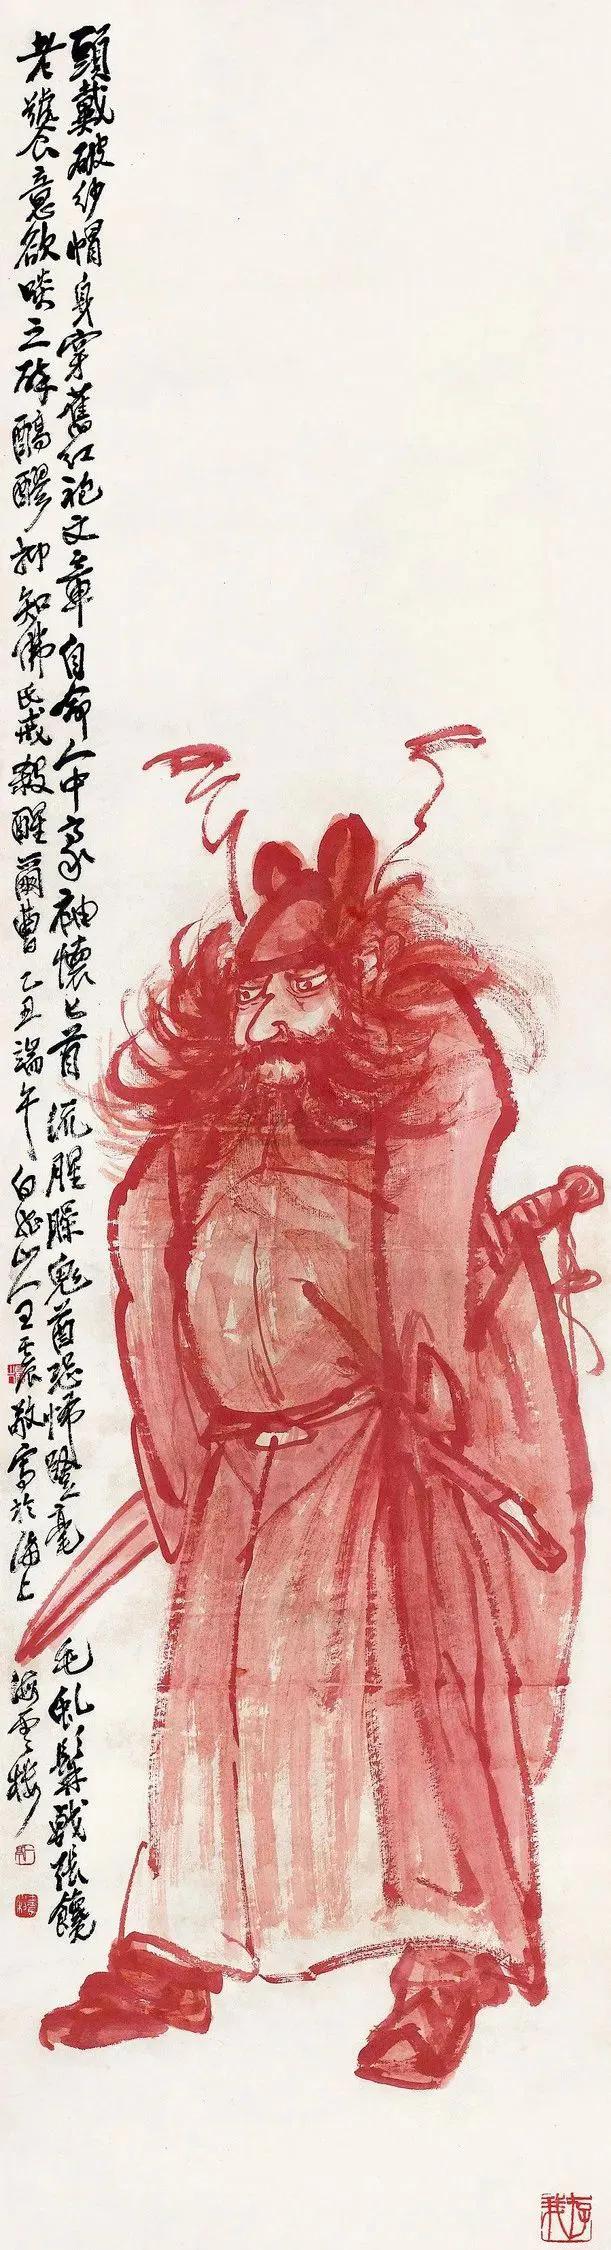 頭戴破紗帽身穿舊紅袍文章自命人中豪袖懷匕首流腥臊鬼酋恐怖豎毫毛虬髯戟張饞
老饕意欲啖之醉醪抑知佛氏戒殺醒爾曹乙丑端午白龍山人王震敬寫於海上海雲樓
存我